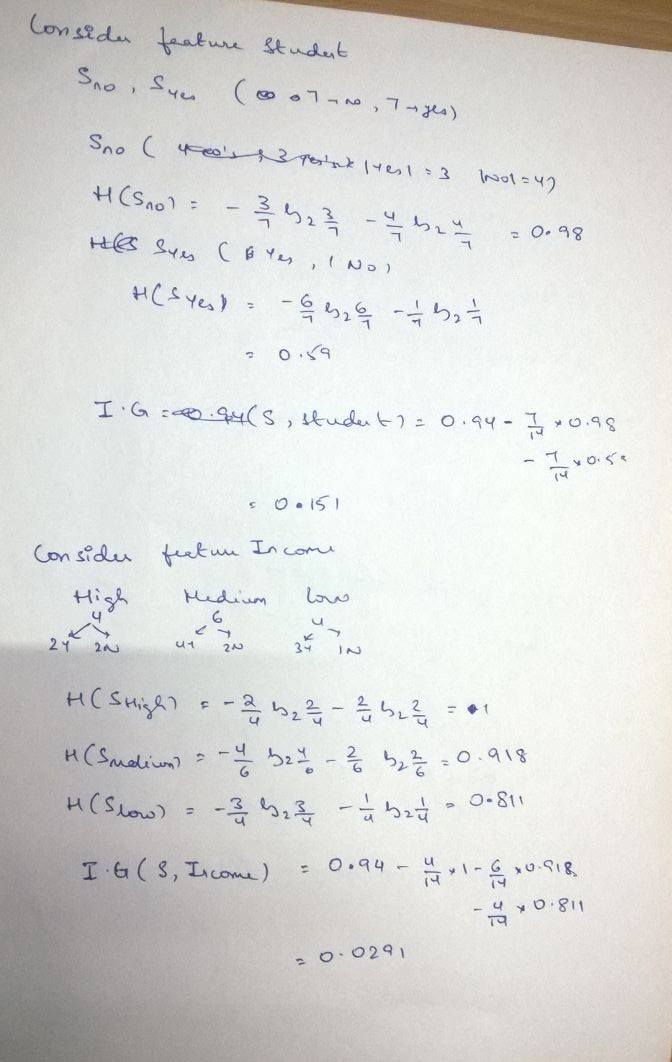 Consider feature Student
Sno, Syes ( 7→no, 7→yes)
Sno ( |Yes| = 3 |No| = 4)
H(Sno) = - 3/7 log2 3/7 - 4/7 log2 4/7 = 0.98
Syes (6 Yes, 1 No)
H(Syes) = - 6/7 log2 6/7 - 1/7 log2 1/7
= 0.59
I.G = (S, student) = 0.94 - 7/14 × 0.98
- 7/14 × 0.59
= 0.151
Consider feature Income
High Medium Low
4 6 4
2Y 2N 4Y 2N 3Y 1N
H(SHigh) = - 2/4 log2 2/4 - 2/4 log2 2/4 = 1
H(Smedium) = - 4/6 log2 4/6 - 2/6 log2 2/6 = 0.918
H(Slow) = - 3/4 log2 3/4 - 1/4 log2 1/4 = 0.811
I.G(S, Income) = 0.94 - 4/14 × 1 - 6/14 × 0.918
- 4/14 × 0.811
= 0.0291